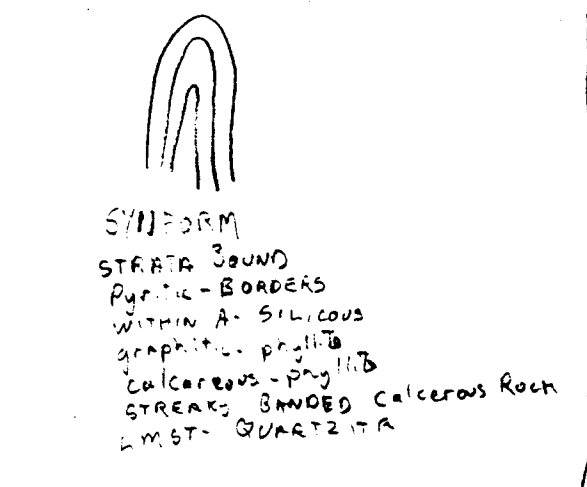 SYNFORM
STRATA BOUND
Pyritic - BORDERS
WITHIN A - SILICOUS
graphitic - phyllite
calcareous - phyllite
STREAKY BANDED calcerous Rock
LMST - QUARTZITE